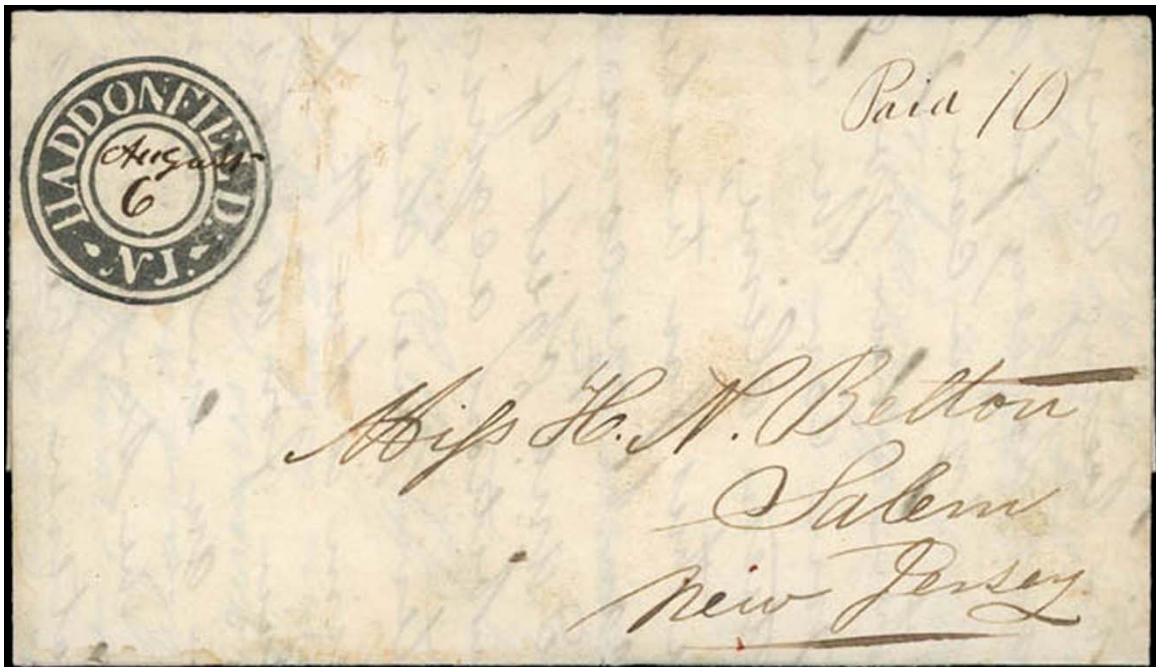 HADDONFIELD.
August
6
NJ.
Paid 10
Miss H. N. Betton
Salem
New Jersey